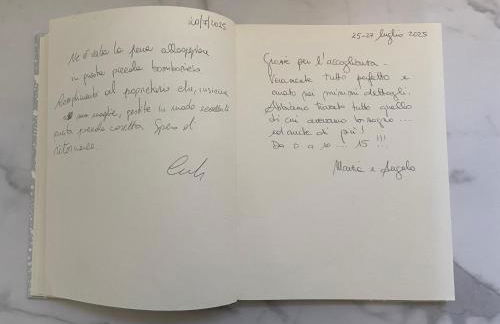 20/7/2025
Ne è valsa la pena alloggiare
in questa piccola bomboniera
Complimenti al proprietario che, insieme
a sua moglie, gestite in modo eccellente
questa piccola casetta. Spero di
ritornare.
25-27 luglio 2025
Grazie per l'accoglienza.
Veramente tutto perfetto e
curato per minimi dettagli.
Abbiamo trovato tutto quello
di cui avevamo bisogno....
ed anche di più!
Da 0 a 10 ... 15 !!!
Maria e Angelo